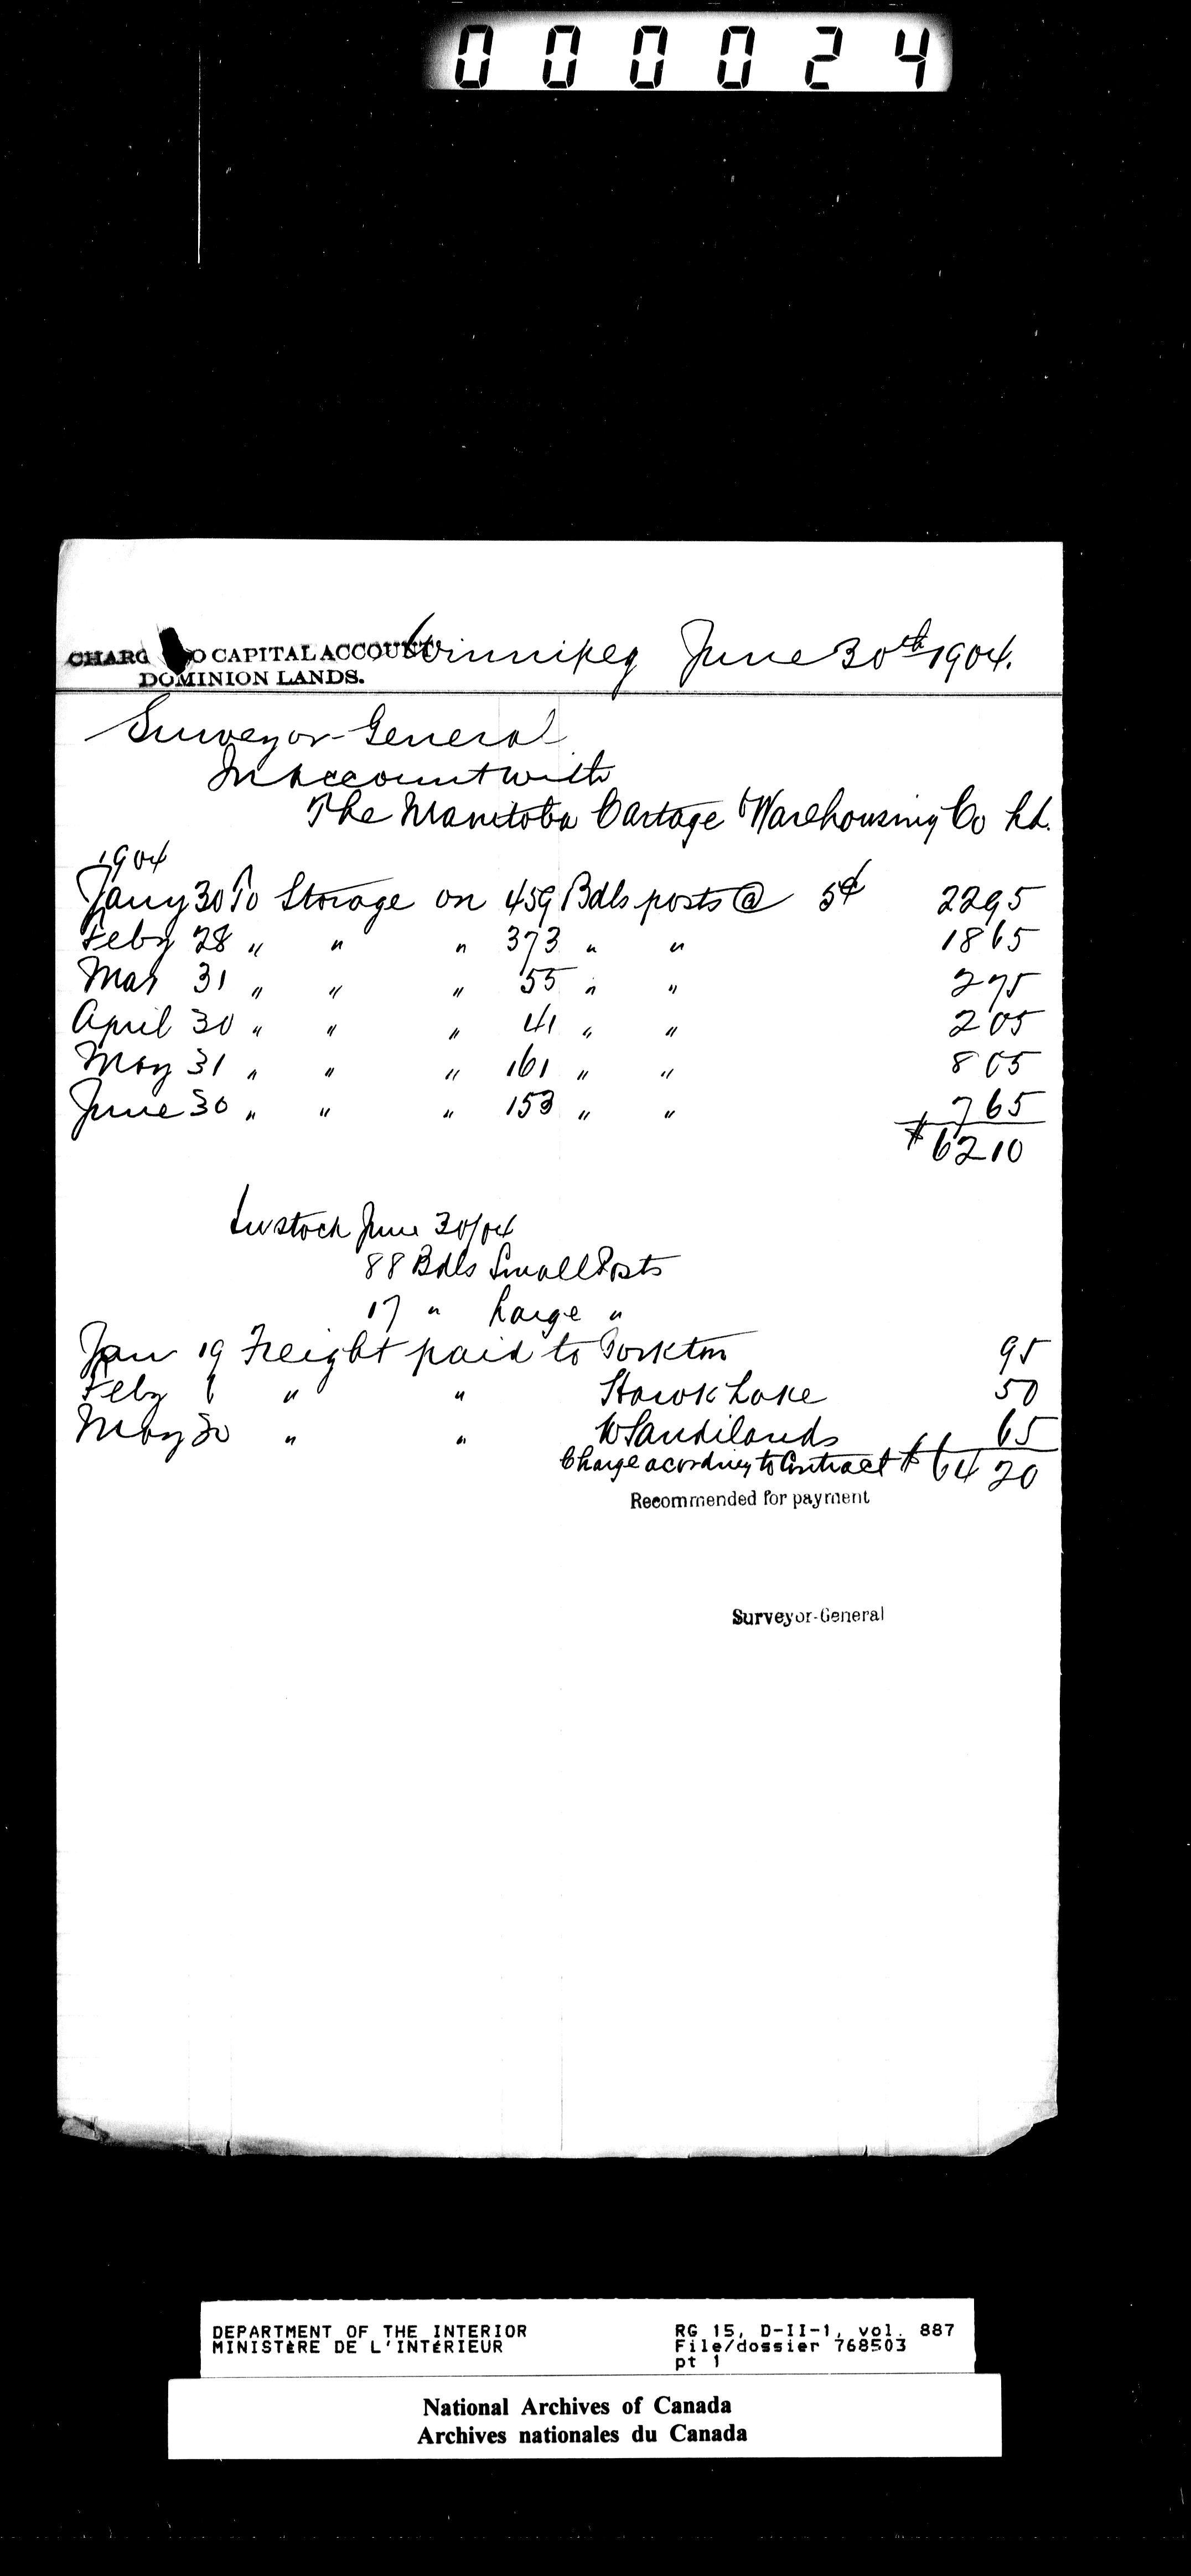 000024
CHARG O CAPITAL ACCOUNT
DOMINION LANDS.
Winnipeg June 30th 1904.
Surveyor-General
In account with
The Manitoba Cartage & Warehousing Co Ld.
1904
Jany 30 To Storage on 459 Bdls posts @ 5¢ 2295
Feby 28 " " " 373 " " 1865
Mar 31 " " " 55 " " 275
April 30 " " " 41 " " 205
May 31 " " " 161 " " 805
June 30 " " " 153 " " 765
$6210
In stock June 30/04
88 Bdls Small Posts
17 " Large "
Jan 19 Freight paid to Yorkton 95
Feby 1 " " Hawk Lake 50
May 30 " " W Sandilands 65
Charge acording to Contract $64 20
Recommended for payment
Surveyor-General
DEPARTMENT OF THE INTERIOR RG 15, D-II-1, vol. 887
MINISTÈRE DE L'INTÉRIEUR File/dossier 768503
pt 1
National Archives of Canada
Archives nationales du Canada